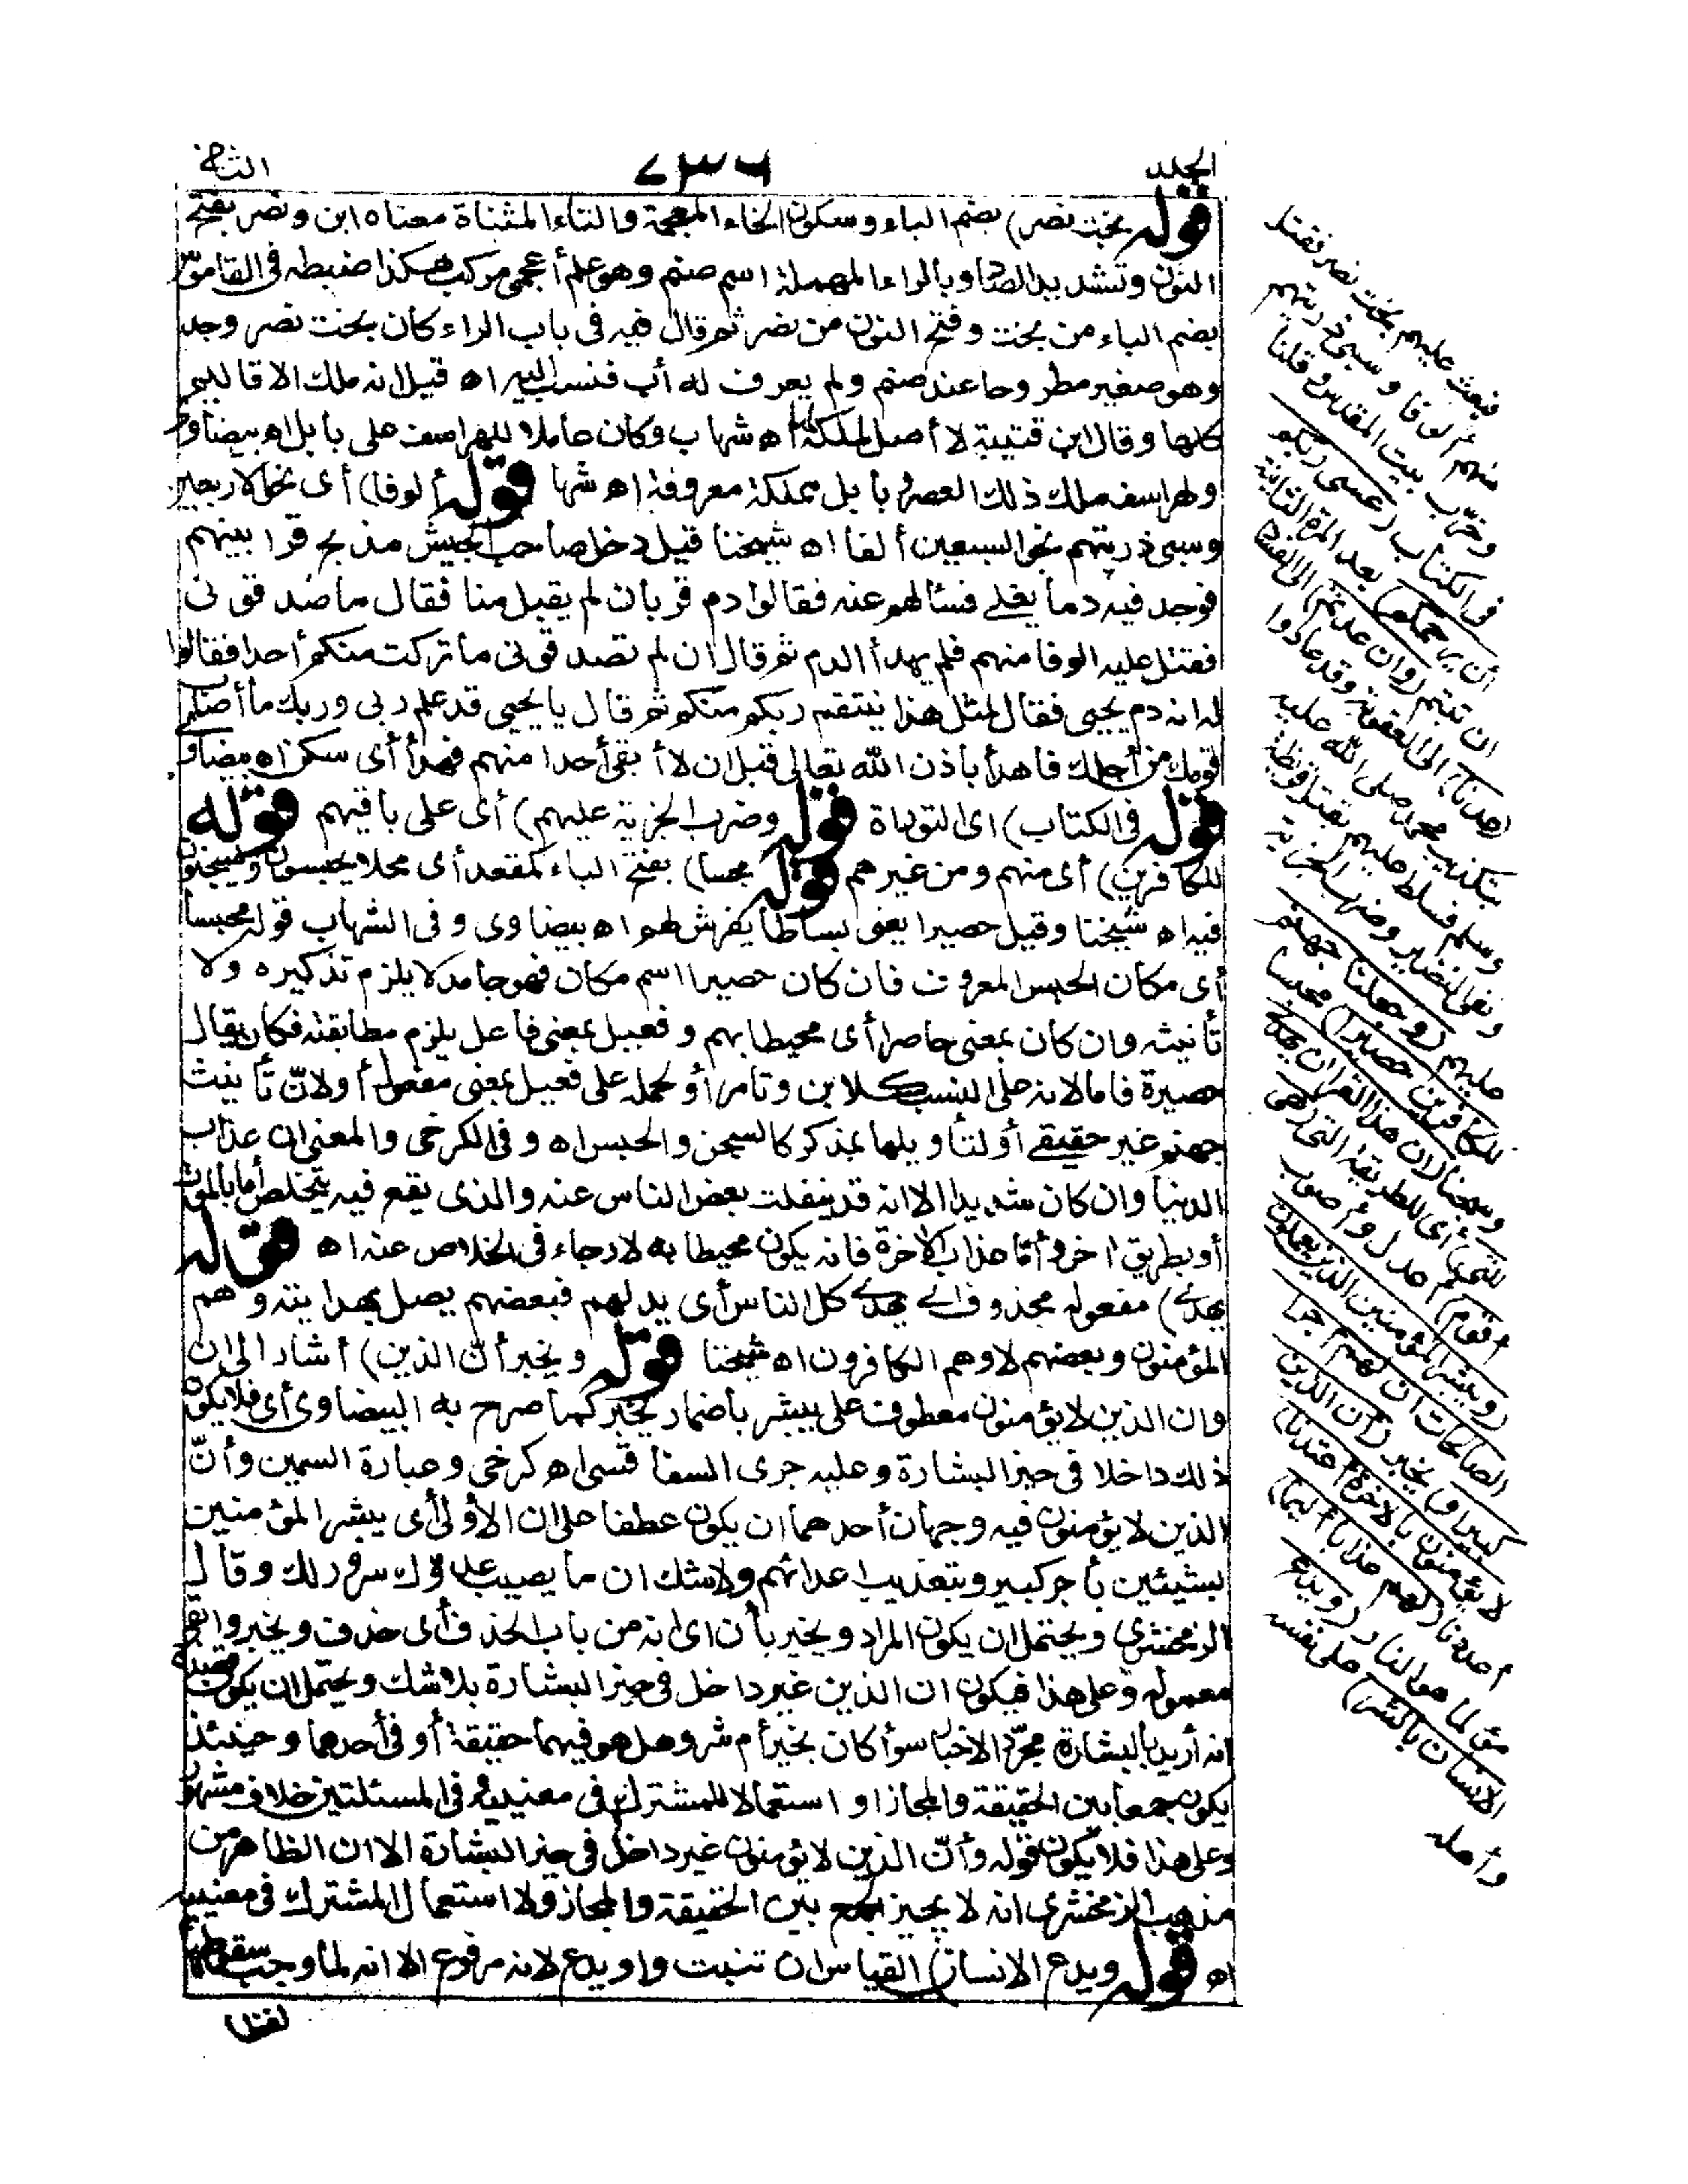 الجلد
٧٣٦
الثانى
قوله بخت نصر) بضم الباء وسكون الخاء المعجمة والتاء المثناة معناه ابن ونصر بفتح
النون وتشديد الصاد وبالراء المهملة اسم صنم وهو علم أعجمى مركب هكذا ضبطه فى القاموس
بضم الباء من بخت وفتح النون من نصر ثم قال فيه فى باب الراء كان بخت نصر وجد
وهو صغير مطروحا عند صنم ولم يعرف له أب فنسب اليه اه قيل انه ملك الاقاليم
كلها وقال ابن قتيبة لا أصل لملكه لها اه شهاب وكان عاملا للهراسف على بابل اه بيضاوى
ولهراسف ملك ذلك العصر وبابل مملكة معروفة اه شهاب قوله ألوفا) أى نحو الاربعين
وسبى ذريتهم نحو السبعين ألفا اه شيخنا قيل دخل صاحب الجيش مذبح قرابينهم
فوجد فيه دما يغلى فسألهم عنه فقالوا دم قربان لم يقبل منا فقال ما صدقونى
فقتل عليه الوفا منهم فلم يهدأ الدم ثم قال ان لم تصدقونى ما تركت منكم أحدا فقالوا
له انه دم يحيى فقال لمثل هذا ينتقم ربكم منكم ثم قال يا يحيى قد علم ربى وربك ما أصاب
قومك من أجلك فاهدأ باذن الله تعالى قبل ان لا أبقى أحدا منهم فهدأ أى سكن اه بيضاوى
قوله فى الكتاب) اى التوراة قوله وضرب الجزية عليهم) أى على باقيهم قوله
للكافرين) أى منهم ومن غيرهم قوله محبسا) بفتح الباء كمقعد أى محلا يحبسون ويسجنون
فيه اه شيخنا وقيل حصيرا يعنى بساطا يفرش لهم اه بيضاوى وفى الشهاب قوله محبسا
أى مكان الحبس المعروف فان كان حصيرا اسم مكان فهو جامد لا يلزم تذكيره ولا
تأنيثه وان كان بمعنى حاصرا أى محيطا بهم وفعيل بمعنى فاعل يلزم مطابقته فكان يقال
حصيرة فاما لانه على النسب كلابن وتامر أو لحمله على فعيل بمعنى مفعول أو لانّ تأنيث
جهنم غير حقيقى أو لتأويلها بمذكر كالسجن والحبس اه وفى الكرخى والمعنى ان عذاب
الدنيا وان كان شديدا الا انه قد ينفلت بعض الناس عنه والذى يقع فيه يتخلص أما بالموت
أو بطريق اخر وأمّا عذاب الآخرة فانه يكون محيطا به لا رجاء فى الخلاص عنه اه قوله
يهدى) مفعوله محذوف أى يهدى كل الناس أى يدلهم فبعضهم يصل بهدايته وهم
المؤمنون وبعضهم لا وهم الكافرون اه شيخنا قوله ويخبر أن الذين) أشار الى ان
وان الذين لا يؤمنون معطوف على يبشر باضمار يخبر كما صرح به البيضاوى أى فلا يكون
ذلك داخلا فى حيز البشارة وعليه جرى السفاقسى اه كرخى وعبارة السمين وأنّ
الذين لا يؤمنون فيه وجهان أحدهما ان يكون عطفا على ان الأولى أى يبشر المؤمنين
بشيئين بأجر كبير وبتعذيب اعدائهم ولا شك ان ما يصيب عدوك سرور لك وقال
الزمخشرى ويحتمل ان يكون المراد ويخبر بأن اى انه من باب الحذف أى حذف ويخبر وابقى
معموله وعلى هذا فيكون ان الذين غير داخل فى حيز البشارة بلا شك ويحتمل ان يكون قصده
انه أريد بالبشارة مجرّد الاخبار سوأ كان بخير أم شر وهل هو فيهما حقيقة أو فى أحدهما وحينئذ
يكون جمعا بين الحقيقة والمجاز او استعمالا للمشترك فى معنييه وفى المسئلتين خلاف مشهور
وعلى هذا فلا يكون قوله وأنّ الذين لا يؤمنون غير داخل فى حيز البشارة الا ان الظاهر من
مذهب الزمخشرى انه لا يجيز الجمع بين الحقيقة والمجاز ولا استعمال المشترك فى معنييه
اه قوله ويدع الانسان) القياس ان تثبت واو يدع لانه مرفوع الا انه لما وجب سقوطها
لفظا
فبعث عليهم بخت نصر فقتل
منهم ألوفا وسبى ذريتهم
وخرّب بيت المقدس وقلنا
فى الكتاب (عسى ربكم
أن يرحمكم) بعد المرة الثانية
ان تبتم (وان عدتم) الى الفساد
(عدنا) الى العقوبة وقد عادوا
بتكذيب محمد صلى الله عليه
وسلم فسلط عليهم بقتل قريظة
ونفى النضير وضرب الجزية
عليهم (وجعلنا جهنم
للكافرين حصيرا) محبسا
وسجنا (ان هذا القرآن يهدى
للتى) أى للطريقة التى (هى
أقوم) أعدل وأصوب
(ويبشر المؤمنين الذين يعملون
الصالحات ان لهم أجرا
كبيرا و) يخبر (أن الذين
لا يؤمنون بالآخرة أعتدنا)
أعددنا (لهم عذابا أليما)
مؤلما هو النار (ويدع
الانسان بالشر) على نفسه
وأهله